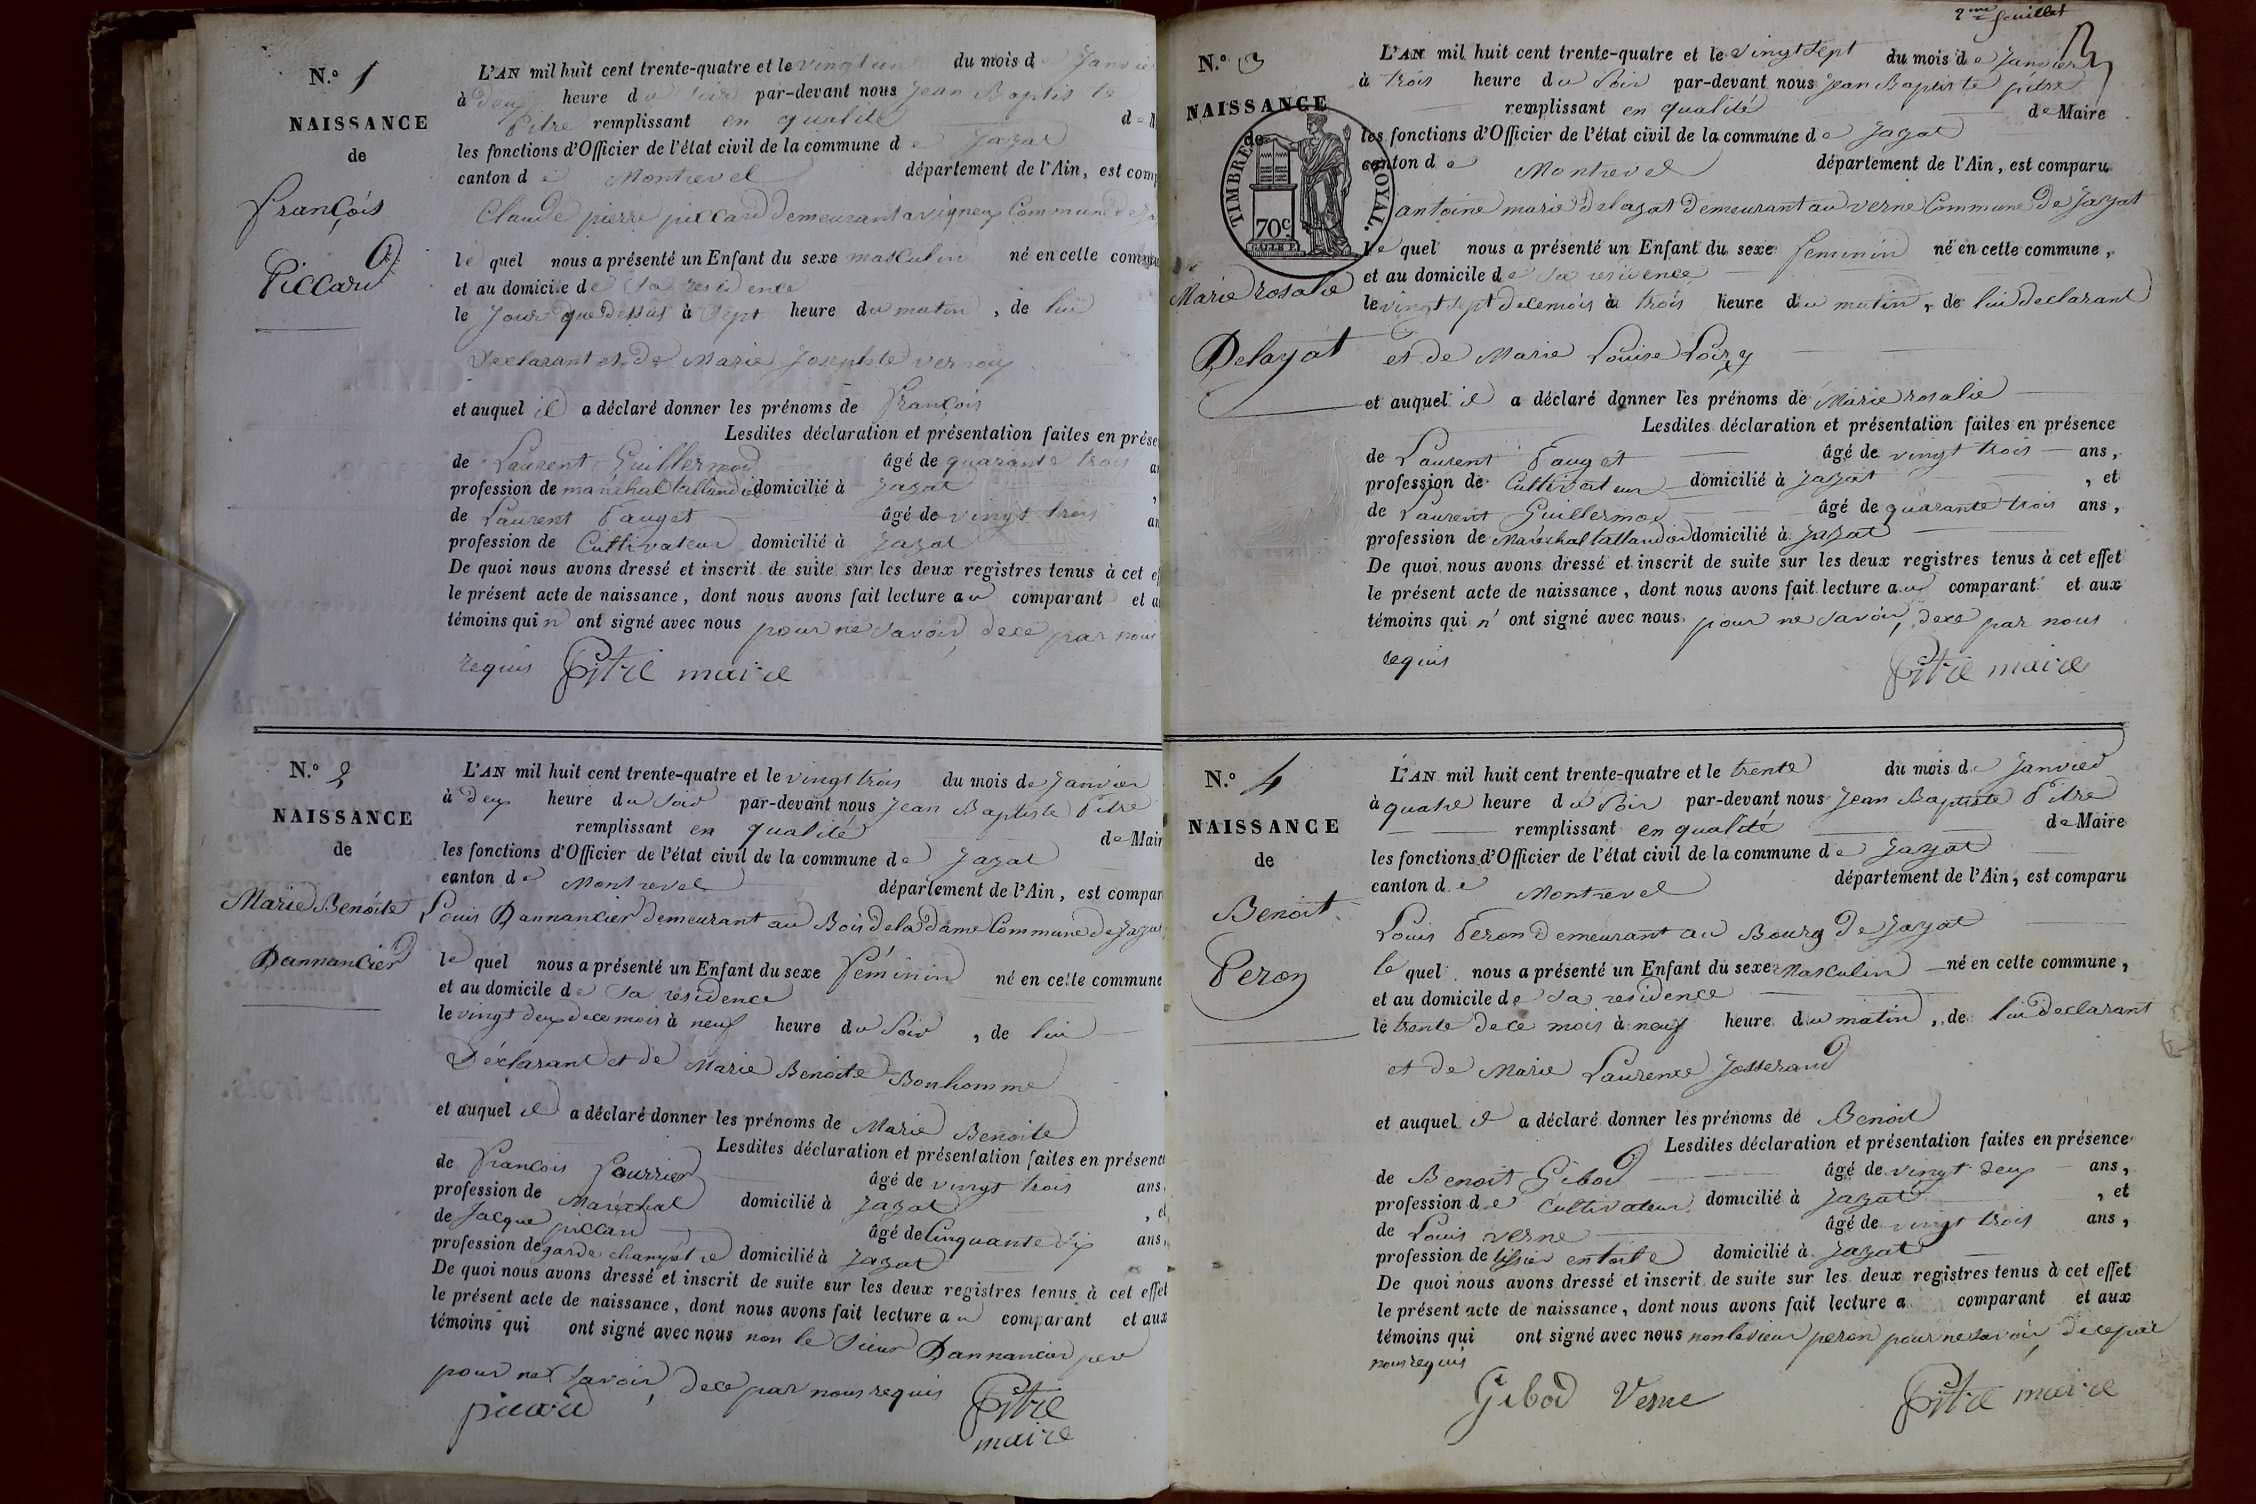 N.° 1
NAISSANCE
de
François
Piccard
L'AN mil huit cent trente-quatre et le vingt un du mois de Janvier
à deux heure du soir par-devant nous Jean Baptiste
Pitre remplissant en qualité de
les fonctions d'Officier de l'état civil de la commune de Jayat
canton de Montrevel département de l'Ain, est comp
Claude pierre piccard demeurant a vigneux Commune de
le quel nous a présenté un Enfant du sexe masculin né en cette commune
et au domicile de Sa residence
le Jour que dessus à Sept heure du matin, de lui
Declarant et de Marie Josephte vernoux
et auquel il a déclaré donner les prénoms de François
Lesdites déclaration et présentation faites en prése
de Laurent Guillermod âgé de quarante trois
profession de maréchal tallandier domicilié à Jayat
de Laurent Pauget âgé de vingt trois
profession de Cultivateur domicilié à Jayat
De quoi nous avons dressé et inscrit de suite sur les deux registres tenus à cet
le présent acte de naissance, dont nous avons fait lecture au comparant et
témoins qui n' ont signé avec nous pour ne savoir, dece par nous
requis Pitre maire
N.° 2
NAISSANCE
de
Marie Benoite
Dannancier
L'AN mil huit cent trente-quatre et le vingt trois du mois de Janvier
à deux heure du soir par-devant nous Jean Baptiste Pitre
remplissant en qualité de Mair
les fonctions d'Officier de l'état civil de la commune de Jayat
canton de Montrevel département de l'Ain, est compar
Louis Dannancier demeurant au Bois de la dame Commune de Jayat
le quel nous a présenté un Enfant du sexe Féminin né en cette commune
et au domicile de Sa residence
le vingt deux dece mois à neuf heure du Soir, de lui
Déclarant et de Marie Benoite Bonhomme
et auquel il a déclaré donner les prénoms de Marie Benoite
Lesdites déclaration et présentation faites en présence
de François Fourrier âgé de vingt trois ans,
profession de Maréchal domicilié à Jayat, et
de Jacque piccard âgé de Cinquante dix ans,
profession de garde champêtre domicilié à Jayat
De quoi nous avons dressé et inscrit de suite sur les deux registres tenus à cet effet
le présent acte de naissance, dont nous avons fait lecture au comparant et aux
témoins qui ont signé avec nous non le Sieur Dannancier per
pour ne savoir, dece par nous requis
picard Pitre
maire
2me feuillet
N.° 3
NAISSANCE
de
TIMBRE ROYAL.
70c
Marie rosalie
Delayat
L'AN mil huit cent trente-quatre et le vingt sept du mois de Janvier
à trois heure du Soir par-devant nous Jean Baptiste pitre
remplissant en qualité de Maire
les fonctions d'Officier de l'état civil de la commune de Jayat
canton de Montrevel département de l'Ain, est comparu
antoine marie delayat demeurant au verne Commune de Jayat
le quel nous a présenté un Enfant du sexe feminin né en cette commune,
et au domicile de sa residence
le vingt sept dece mois à trois heure du matin, de lui declarant
et de Marie Louise
et auquel il a déclaré donner les prénoms de Marie rosalie
Lesdites déclaration et présentation faites en présence
de Laurent Pauget âgé de vingt trois ans,
profession de Cultivateur domicilié à Jayat, et
de Laurent Guillermod âgé de quarante trois ans,
profession de Maréchal tallandier domicilié à Jayat
De quoi nous avons dressé et inscrit de suite sur les deux registres tenus à cet effet
le présent acte de naissance, dont nous avons fait lecture au comparant et aux
témoins qui n' ont signé avec nous pour ne savoir, dece par nous
requis
Pitre maire
N.° 4
NAISSANCE
de
Benoit
Peron
L'AN mil huit cent trente-quatre et le trente du mois de Janvier
à quatre heure du Soir par-devant nous Jean Baptiste Pitre
remplissant en qualité de Maire
les fonctions d'Officier de l'état civil de la commune de Jayat
canton de Montrevel département de l'Ain, est comparu
Louis Peron demeurant au Bourg de Jayat
le quel nous a présenté un Enfant du sexe Masculin né en cette commune,
et au domicile de Sa residence
le trente dece mois à neuf heure du matin, de lui declarant
et de Marie Laurence Josserand
et auquel il a déclaré donner les prénoms de Benoit
Lesdites déclaration et présentation faites en présence
de Benoit Gibod âgé de vingt deux ans,
profession de Cultivateur domicilié à Jayat, et
de Louis verne âgé de vingt trois ans,
profession de tissier en toile domicilié à Jayat
De quoi nous avons dressé et inscrit de suite sur les deux registres tenus à cet effet
le présent acte de naissance, dont nous avons fait lecture a comparant et aux
témoins qui ont signé avec nous non le sieur peron pour ne savoir, dece par
nous requis
Gibod Verne Pitre maire